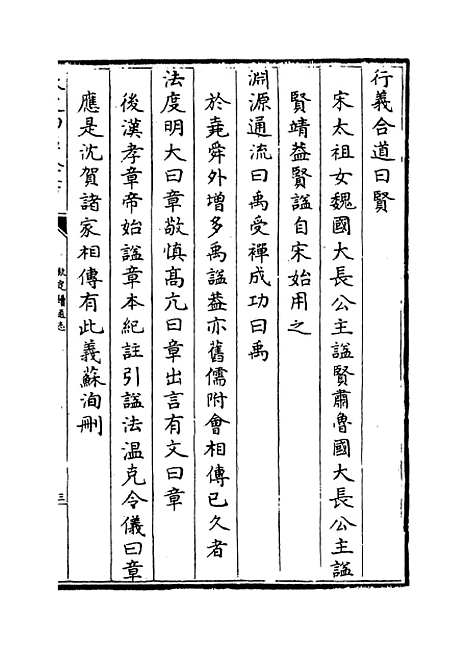 行義合道曰賢
宋太祖女魏國大長公主諡賢肅魯國大長公主諡
賢靖葢賢諡自宋始用之
淵源通流曰禹受禪成功曰禹
於堯舜外增多禹諡葢亦舊儒附會相傳已久者
法度明大曰章敬慎髙亢曰章出言有文曰章
後漢孝章帝始諡章本紀註引諡法溫克令儀曰章
應是沈賀諸家相傳有此義蘇洵刪
欽定續通志
三